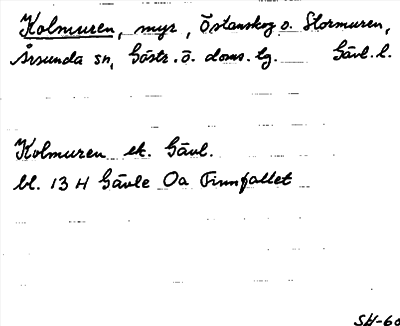 Kolmuren, myr, Östanskog o. Stormuren,
Årsunda sn, Gästr. ö. doms. lg. Gävl. l.
Kolmuren ek. Gävl.
bl. 13 H Gävle Oa Finnfallet
SH-60